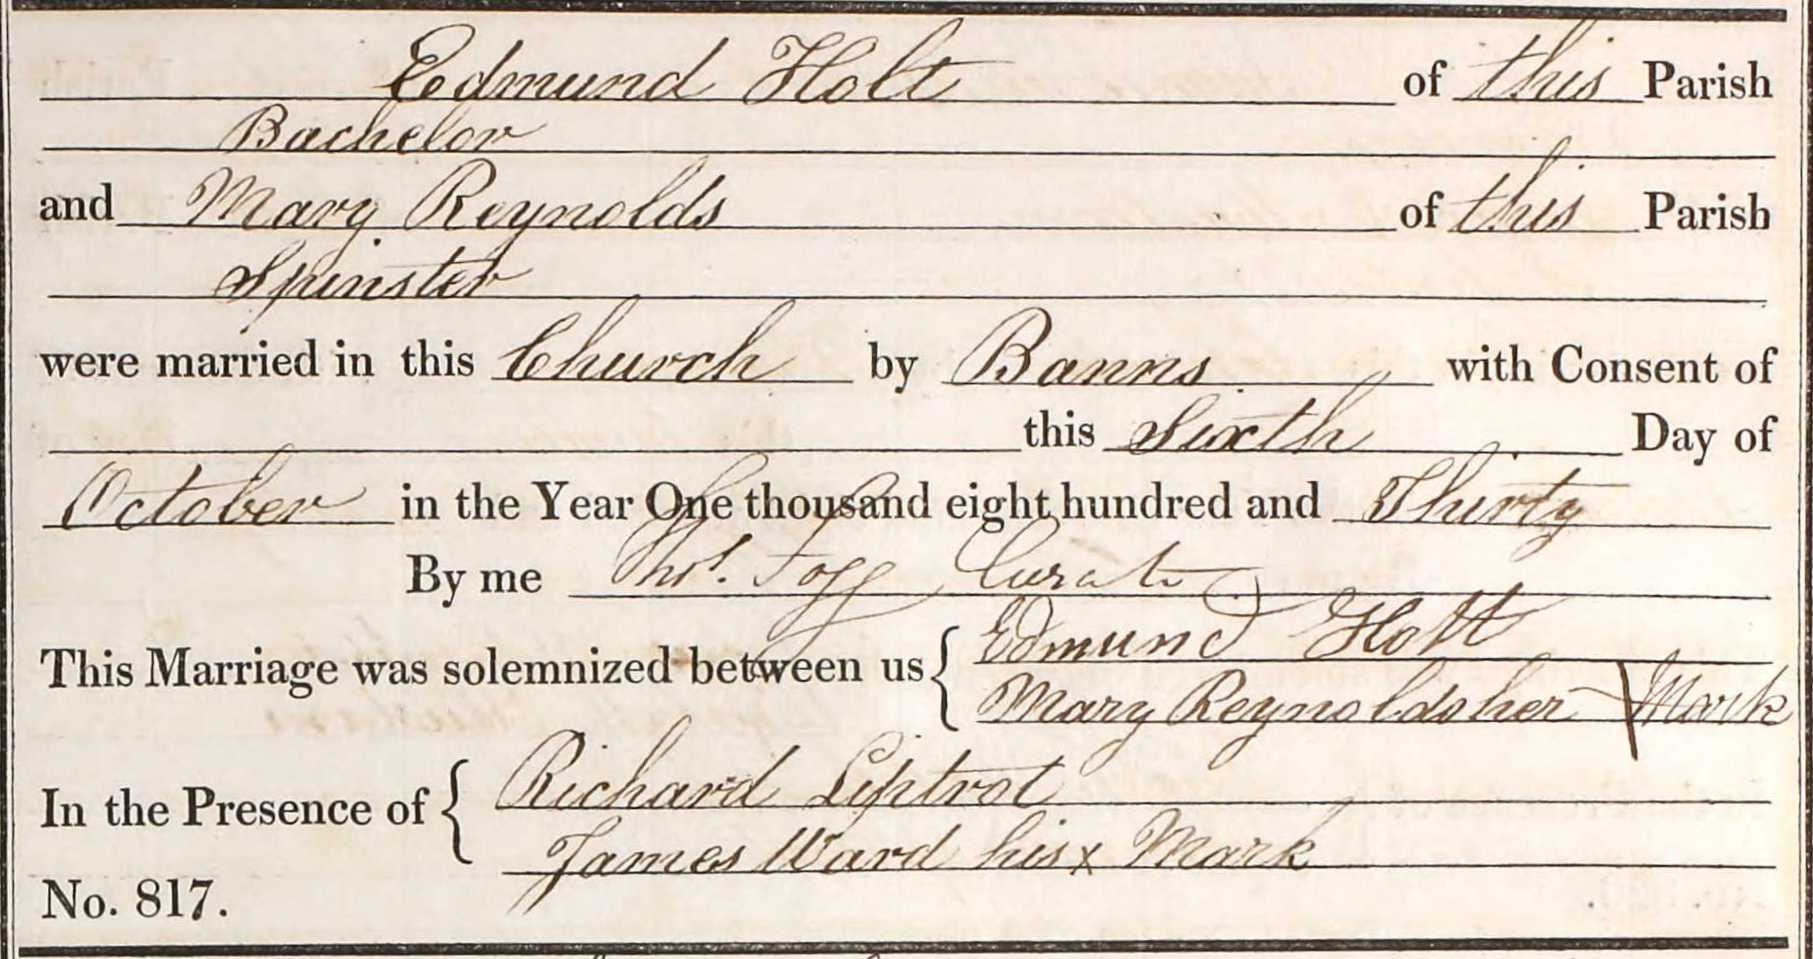 Edmund Holt of this Parish
Bachelor
and Mary Reynolds of this Parish
Spinster
were married in this Church by Banns with Consent of
this Sixth Day of
October in the Year One thousand eight hundred and Thirty
By me Thos. Fogg Curate
This Marriage was solemnized between us { Edmund Holt
Mary Reynolds her Mark
In the Presence of { Richard Liptrot
James Ward his x Mark
No. 817.